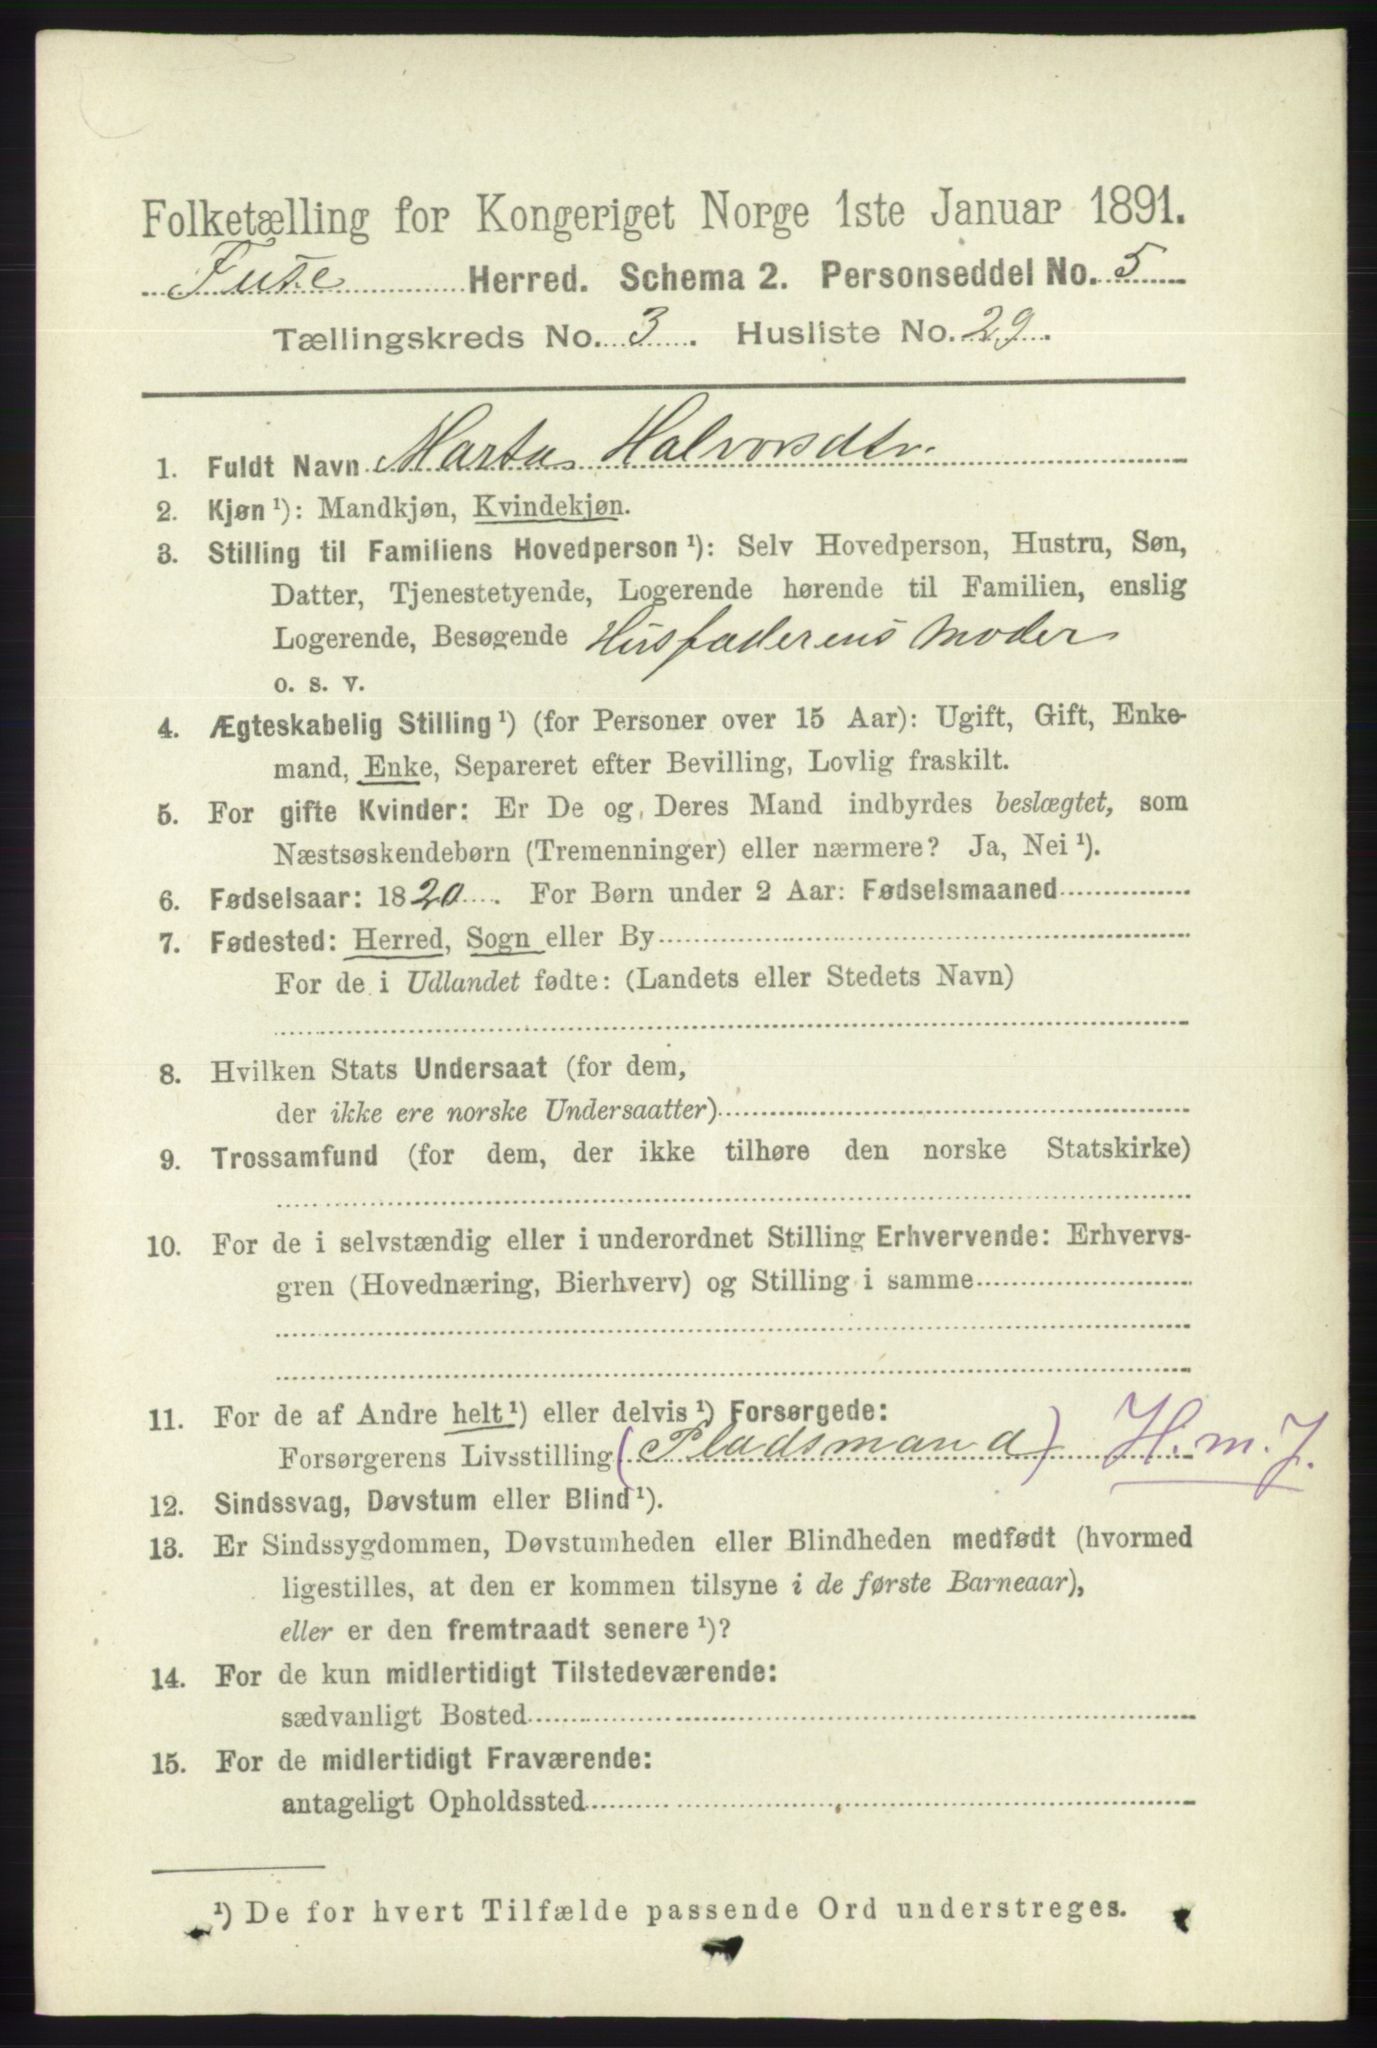 Folketælling for Kongeriget Norge 1ste Januar 1891.
Fuse Herred. Schema 2. Personseddel No. 5
Tællingskreds No. 3. Husliste No. 29.
1. Fuldt Navn Marta Halvorsdtr.
2. Kjøn ¹): Mandkjøn, Kvindekjøn.
3. Stilling til Familiens Hovedperson ¹): Selv Hovedperson, Hustru, Søn,
Datter, Tjenestetyende, Logerende hørende til Familien, enslig
Logerende, Besøgende Husfaderens Moder
o. s. v.
4. Ægteskabelig Stilling ¹) (for Personer over 15 Aar): Ugift, Gift, Enke-
mand, Enke, Separeret efter Bevilling, Lovlig fraskilt.
5. For gifte Kvinder: Er De og Deres Mand indbyrdes beslægtet, som
Næstsøskendebørn (Tremenninger) eller nærmere? Ja, Nei ¹).
6. Fødselsaar: 1820. For Børn under 2 Aar: Fødselsmaaned
7. Fødested: Herred, Sogn eller By
For de i Udlandet fødte: (Landets eller Stedets Navn)
8. Hvilken Stats Undersaat (for dem,
der ikke ere norske Undersaatter)
9. Trossamfund (for dem, der ikke tilhøre den norske Statskirke)
10. For de i selvstændig eller i underordnet Stilling Erhvervende: Erhvervs-
gren (Hovednæring, Bierhverv) og Stilling i samme
11. For de af Andre helt ¹) eller delvis ¹) Forsørgede:
Forsørgerens Livsstilling (Pladsmand) H. m. J.
12. Sindssvag, Døvstum eller Blind ¹).
13. Er Sindssygdommen, Døvstumheden eller Blindheden medfødt (hvormed
ligestilles, at den er kommen tilsyne i de første Barneaar),
eller er den fremtraadt senere ¹)?
14. For de kun midlertidigt Tilstedeværende:
sædvanligt Bosted
15. For de midlertidigt Fraværende:
antageligt Opholdssted
¹) De for hvert Tilfælde passende Ord understreges.